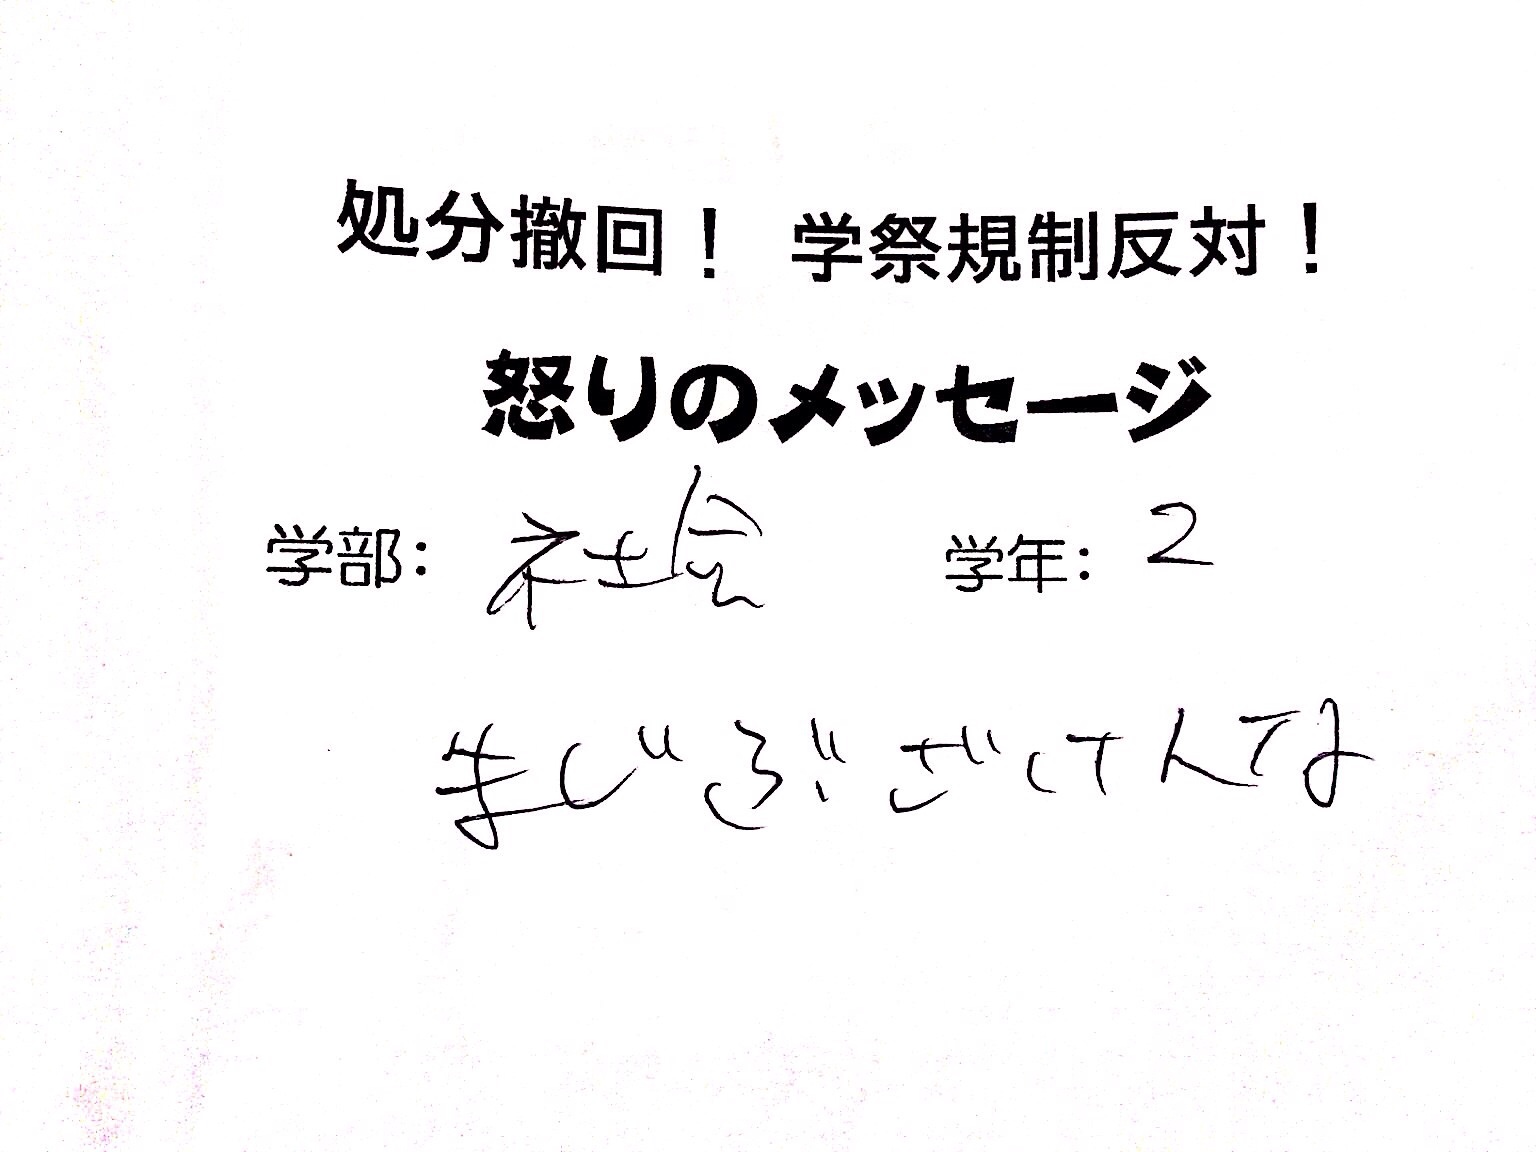 処分撤回！ 学祭規制反対！
怒りのメッセージ
学部: 社会 学年: 2
まじふざけんな